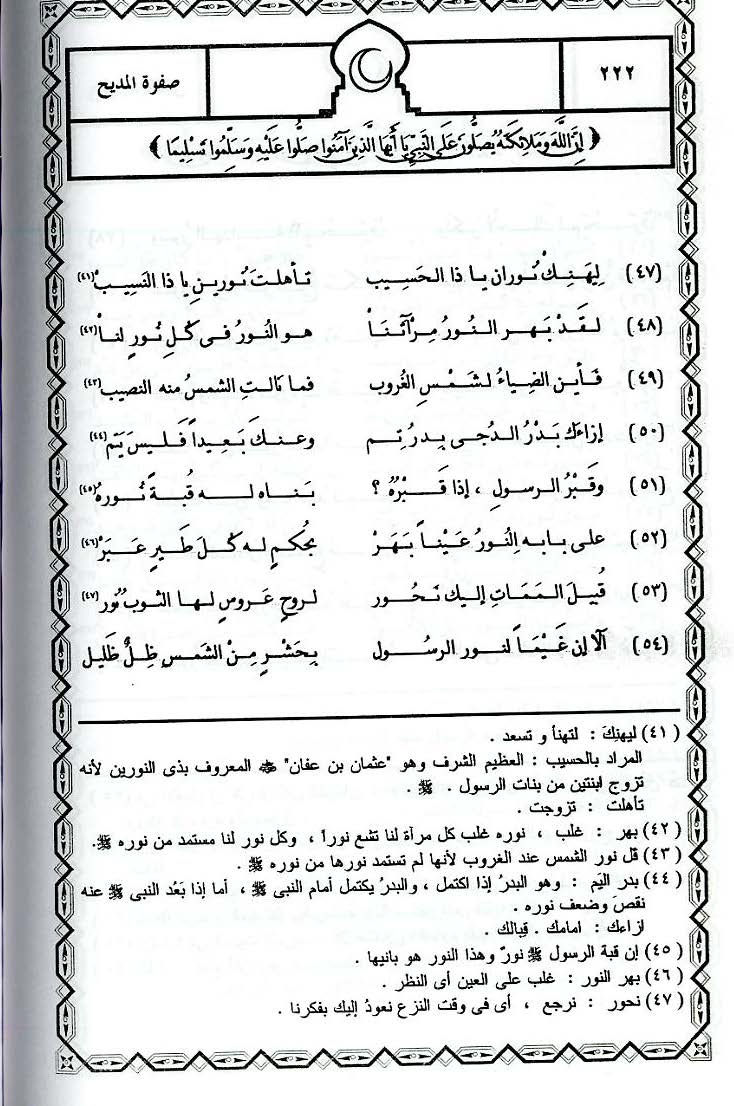 ٢٢٢
صفوة المديح
﴿ إِنَّ اللَّهَ وَمَلَائِكَتَهُ يُصَلُّونَ عَلَى النَّبِيِّ يَا أَيُّهَا الَّذِينَ آمَنُوا صَلُّوا عَلَيْهِ وَسَلِّمُوا تَسْلِيمًا ﴾
(٤٧) لِيهَنِكْ نُوران يا ذا الحَسِيب تأهلتَ نُورينِ يا ذا النَسِيبْ(٤١)
(٤٨) لقَدْ بَهر النُورُ مِرآتنَاْ هو النُورُ فى كُلِ نُورٍ لناْ(٤٢)
(٤٩) فَأين الضِياءُ لشَمْسِ الغُروب فما نَالتِ الشمسُ منه النصيب(٤٣)
(٥٠) إزاءَك بَدْرُ الدُجى بِدرُ تِم وعنكَ بَعِيداً فَليسَ يَتم(٤٤)
(٥١) وقَبْرُ الرسولِ ، إذا قَبْرُهُ ؟ بَناه له قُبةً نُوره(٤٥)
(٥٢) على بابه النُورُ عَيْناً بَهَرْ بحُكمٍ له كُلَ طَيرٍ عَبَرْ(٤٦)
(٥٣) قُبيلَ المَمَاتِ إليك نَحُور لروحٍ عَروسٍ لها الثوبُ نُور(٤٧)
(٥٤) ألا إن غَيْمَاً لنور الرسُول بِحَشْرٍ مِنْ الشمَسِ ظِلٌ ظَليل
(٤١) ليهنِكَ : لتهنأ و تسعد .
المراد بالحسيب : العظيم الشرف وهو "عثمان بن عفان" ﷺ المعروف بذى النورين لأنه
تزوج ابنتين من بنات الرسول . ﷺ .
تأهلت : تزوجت .
(٤٢) بهر : غلب ، نوره غلب كل مرآة لنا تشع نوراً ، وكل نور لنا مستمد من نوره ﷺ.
(٤٣) قل نور الشمس عند الغروب لأنها لم تستمد نورها من نوره ﷺ .
(٤٤) بدر اليَم : وهو البدرُ إذا اكتمل ، والبدرُ يكتمل أمام النبى ﷺ ، أما إذا بَعُد النبى ﷺ عنه
نقصَ وضعف نوره .
ازاءك : امامك . قبالك .
(٤٥) إن قبة الرسول ﷺ نورٌ وهذا النور هو بانيها .
(٤٦) بهر النور : غلب على العين أى النظر .
(٤٧) نحور : نرجع ، أى فى وقت النزع نعودُ إليك بفكرنا .